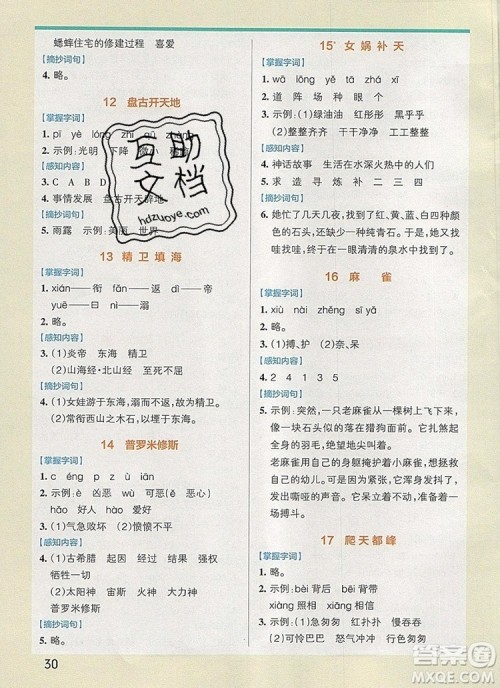 蟋蟀住宅的修建过程 喜爱
【摘抄词句】
4. 略。
12 盘古开天地
【掌握字词】
1. pī yè lóng zhī
2. 示例:光明 下降
【感知内容】
3. C A B D
4. 事情发展 盘古开天辟地
【摘抄词句】
5. 雨露 示例:美丽 世界
13 精卫填海
【掌握字词】
1. xián——衔 nì——溺 fǎn——返
yuē——曰 yīn——堙
2. 略。
【感知内容】
3. (1)炎帝 东海 精卫
(2)山海经·北山经 至死不屈
【摘抄词句】
4. (1)女娃游于东海,溺而不返,故为精卫。
(2)常衔西山之木石,以堙于东海。
14 普罗米修斯
【掌握字词】
1. c éng p z uān
2. 示例:è 凶恶 wù 可恶(厌恶)
hǎo 好人 hào 爱好
3. (1)气急败坏 (2)愤愤不平
【感知内容】
4. (1)古希腊 起因 经过 结果 强权
牺牲一切
(2)太阳神 火神 大力神 宙斯
普罗米修斯
【摘抄词句】
5. 略。
30
15* 女娲补天
【掌握字词】
2. 道 阵 场 种 眼 个
3. 示例:(1)绿油油 红彤彤 黑乎乎
(2)整整齐齐 干干净净 工工整整
【感知内容】
4. 神话故事 生活在水深火热中的人们
5. 求 造 寻 炼 补 二 三 四
【摘抄词句】
6. 示例:她忙了几天几夜,找到了红、黄、蓝、白四种颜
色的石头,还缺少一种纯青石。于是,她又找
哇找哇,终于在一眼清清的泉水中找到了。
16 麻雀
【掌握字词】
1. xiù nài zhǎo
2. 略。
3. (1)搏、护 (2)奈、呆
【感知内容】
4. 2 4 1 3 5
【摘抄词句】
5. 示例:突然,一只老麻雀从一棵树上飞下来,
像一块石头似的落在猎狗面前。它挓挲起全
身的羽毛,绝望地尖叫着。
老麻雀用自己的身躯掩护着小麻雀,想拯救
自己的幼儿。可是因为紧张,它浑身发抖,
发出嘶哑的声音。它呆立着不动,准备着一
场搏斗。
17 爬天都峰
【掌握字词】
1. 示例:bēi 背包 bèi 背带
xiāng 相照 xiàng 照相
2. 示例:(1)急匆匆 慢吞吞
(2)可怜巴巴 怒气冲冲 气喘吁吁
互助
文档
hdzuoye.com
答案圈
MXQE.COM